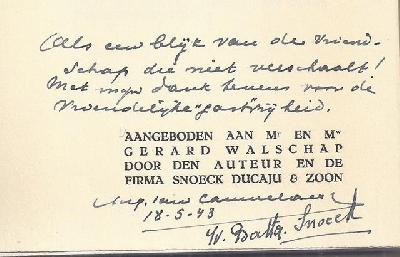 (Als een blijk van de vriend-
schap die niet verschaalt!
Met mijn dank tevens voor de
vriendelijke gastvrijheid.
AANGEBODEN AAN Mr EN Mw
GERARD WALSCHAP
DOOR DEN AUTEUR EN DE
FIRMA SNOECK DUCAJU & ZOON
Aug. van Cauwelaert
18-5-43
Snoeck